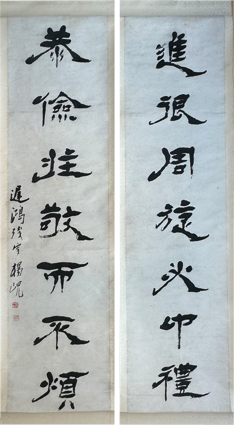 進退周旋必中禮
恭儉莊敬而不煩
遲鴻殘叟楊峴